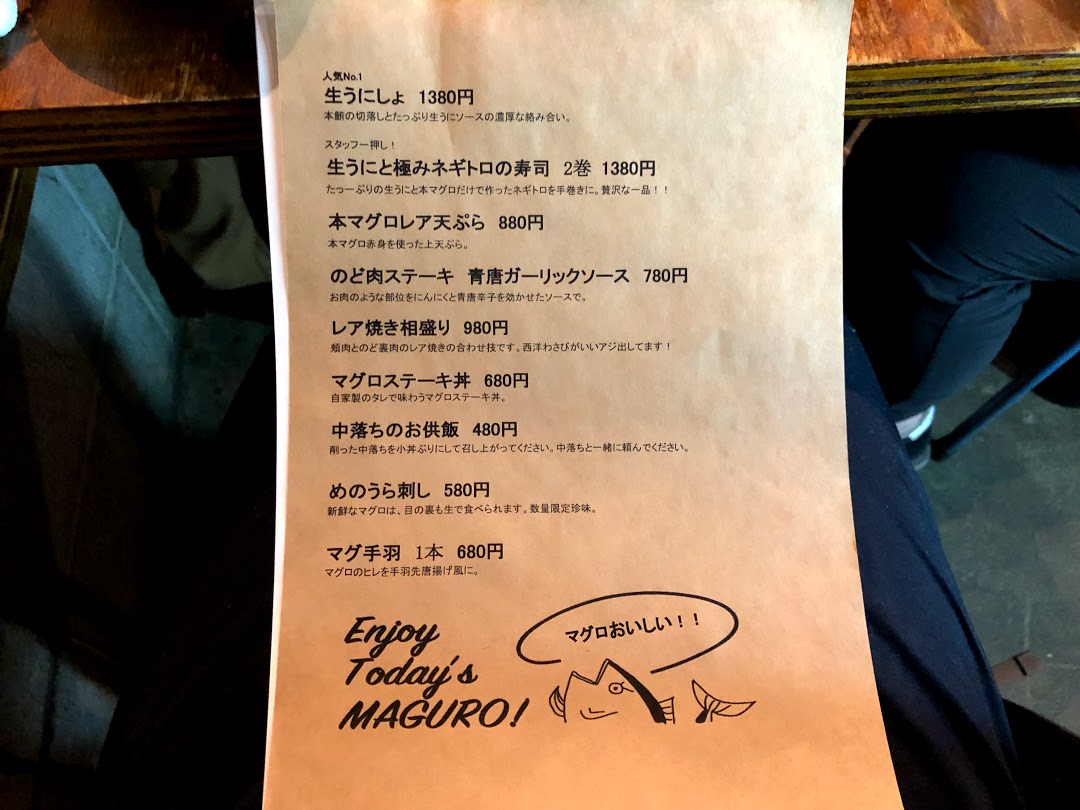 人気No.1
生うにしょ 1380円
本鮪の切落しとたっぷり生うにソースの濃厚な絡み合い。
スタッフ一押し！
生うにと極みネギトロの寿司 2巻 1380円
たっーぷりの生うにと本マグロだけで作ったネギトロを手巻きに。贅沢な一品！！
本マグロレア天ぷら 880円
本マグロ赤身を使った上天ぷら。
のど肉ステーキ 青唐ガーリックソース 780円
お肉のような部位をにんにくと青唐辛子を効かせたソースで。
レア焼き相盛り 980円
頬肉とのど裏肉のレア焼きの合わせ技です。西洋わさびがいいアジ出してます！
マグロステーキ丼 680円
自家製のタレで味わうマグロステーキ丼。
中落ちのお供飯 480円
削った中落ちを小丼ぶりにして召し上がってください。中落ちと一緒に頼んでください。
めのうら刺し 580円
新鮮なマグロは、目の裏も生で食べられます。数量限定珍味。
マグ手羽 1本 680円
マグロのヒレを手羽先唐揚げ風に。
マグロおいしい！！
Enjoy
Today's
MAGURO!